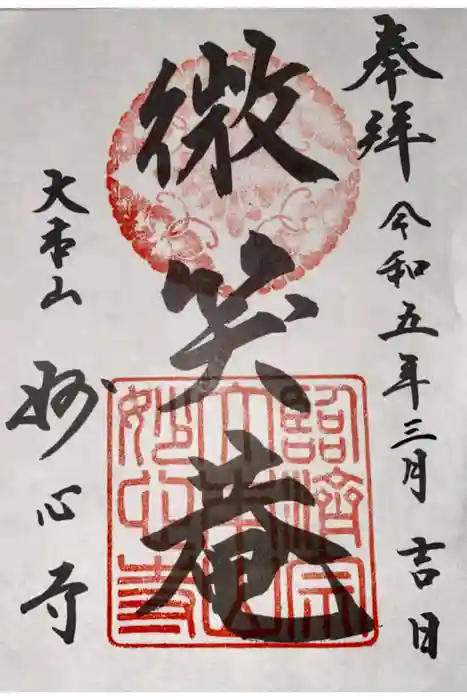 奉拝
令和五年三月吉日
微笑庵
大本山
妙心寺
臨済宗
大本山
妙心寺